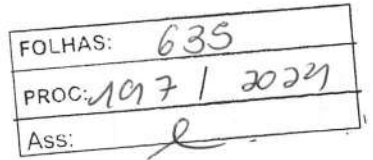 FOLHAS: 635
PROC: 197 / 2024
Ass: